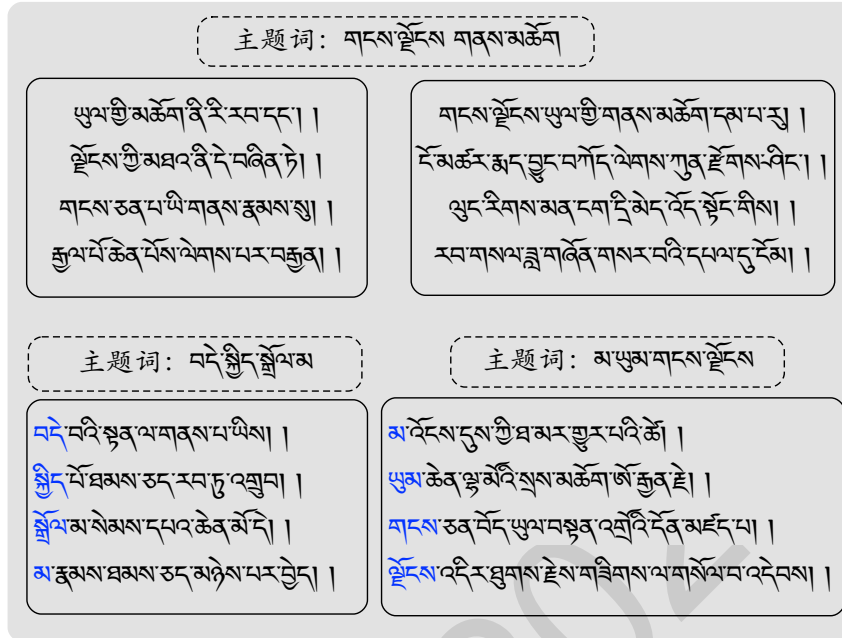 主题词: གངས་ལྗོངས་ གནས་མཆོག
ཡུལ་གྱི་མཆོག་ནི་རི་རབ་དང་། །
ལྗོངས་ཀྱི་མཐའ་ནི་དེ་བཞིན་ཏེ། །
གངས་ཅན་པ་ཡི་གནས་རྣམས་སུ། །
རྒྱལ་པོ་ཆེན་པོས་ལེགས་པར་བརྒྱན། །
གངས་ལྗོངས་ཡུལ་གྱི་གནས་མཆོག་དམ་པ་རུ། །
ངོ་མཚར་རྨད་བྱུང་བཀོད་ལེགས་ཀུན་རྫོགས་ཤིང་། །
ལུང་རིགས་མན་ངག་དྲི་མེད་འོད་སྟོང་གིས། །
རབ་གསལ་ཟླ་གཞོན་གསར་བའི་དཔལ་དུ་ངོམ། །
主题词: བདེ་སྐྱིད་སྒྲོལ་མ
བདེ་བའི་སྟན་ལ་གནས་པ་ཡིས། །
སྐྱིད་པོ་ཐམས་ཅད་རབ་ཏུ་འགྲུབ། །
སྒྲོལ་མ་སེམས་དཔའ་ཆེན་མོ་དེ། །
མ་རྣམས་ཐམས་ཅད་མཉེས་པར་བྱེད། །
主题词: མ་ཡུམ་གངས་ལྗོངས
མ་འོངས་དུས་ཀྱི་ཐ་མར་གྱུར་པའི་ཚེ། །
ཡུམ་ཆེན་ལྷ་མོའི་སྲས་མཆོག་ཨོ་རྒྱན་རྗེ། །
གངས་ཅན་བོད་ཡུལ་བསྟན་འགྲོའི་དོན་མཛད་པ། །
ལྗོངས་འདིར་ཐུགས་རྗེས་གཟིགས་ལ་གསོལ་བ་འདེབས། །